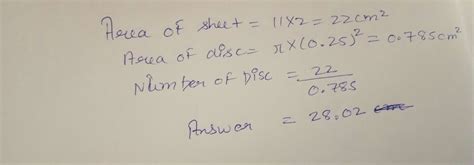 Area of sheet = 11x2 = 22cm²
Area of disc = π x (0.25)² = 0.785cm²
Number of Disc = 22/0.785
Answer = 28.02